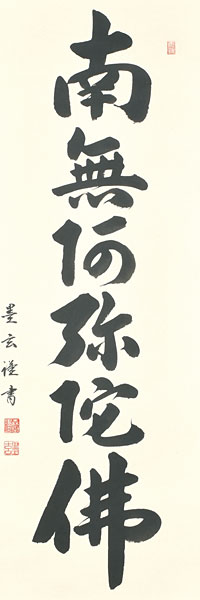 南無阿弥陀佛
墨玄謹書